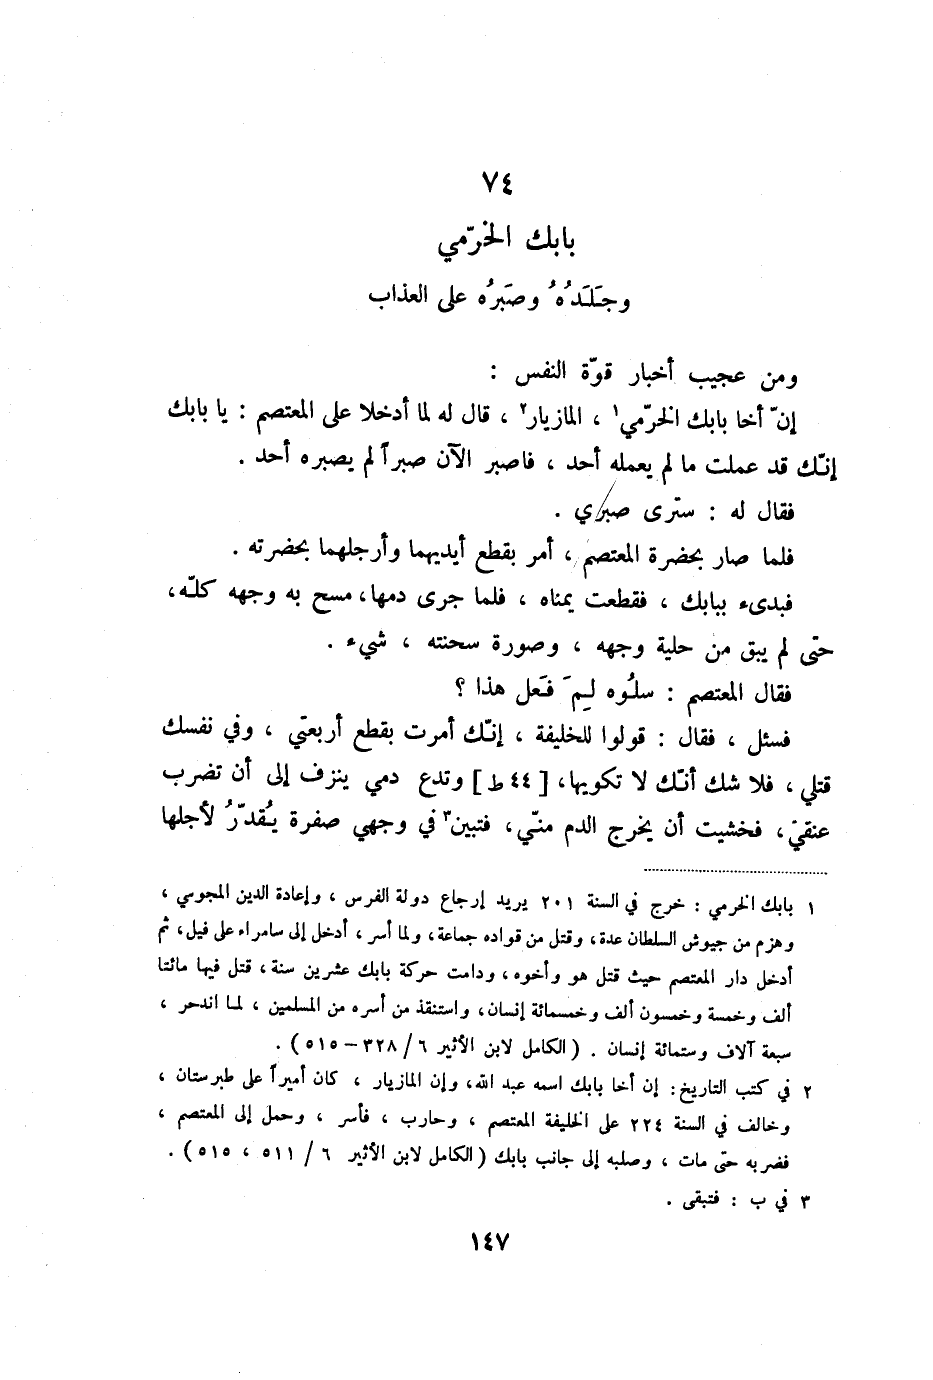 ٧٤
بابك الخرّمي
وجَلَدُهُ وصَبرُه على العذاب
ومن عجيب أخبار قوّة النفس :
إنّ أخا بابك الخرّمي١ ، المازيار٢ ، قال له لما أدخلا على المعتصم : يا بابك
إنّك قد عملت ما لم يعمله أحد ، فاصبر الآن صبراً لم يصبره أحد .
فقال له : سترى صبري .
فلما صار بحضرة المعتصم ، أمر بقطع أيديهما وأرجلهما بحضرته .
فبدىء ببابك ، فقطعت يمناه ، فلما جرى دمها، مسح به وجهه كلّه،
حتّى لم يبق من حلية وجهه ، وصورة سحنته ، شيء .
فقال المعتصم : سلُوه لِمَ فَعل هذا ؟
فسئل ، فقال : قولوا للخليفة ، إنّك أمرت بقطع أربعتي ، وفي نفسك
قتلي ، فلا شك أنّك لا تكويها، [ ٤٤ ط ] وتدع دمي ينزف إلى أن تضرب
عنقي ، فخشيت أن يخرج الدم منّي، فتبين٣ في وجهي صفرة يُقدّرُ لأجلها
١ بابك الخرمي : خرج في السنة ٢٠١ يريد إرجاع دولة الفرس ، وإعادة الدين المجوسي ،
وهزم من جيوش السلطان عدة، وقتل من قواده جماعة، ولما أسر ، أدخل إلى سامراء على فيل، ثم
أدخل دار المعتصم حيث قتل هو وأخوه ، ودامت حركة بابك عشرين سنة ، قتل فيها مائتا
ألف وخمسة وخمسون ألف وخمسمائة إنسان، واستنقذ من أسره من المسلمين ، لما اندحر ،
سبعة آلاف وستمائة إنسان . (الكامل لابن الأثير ٦ / ٣٢٨ – ٥١٥ ) .
٢ في كتب التاريخ : إن أخا بابك اسمه عبد الله، وإن المازيار ، كان أميراً على طبرستان ،
وخالف في السنة ٢٢٤ على الخليفة المعتصم ، وحارب ، فأسر ، وحمل إلى المعتصم ،
فضربه حتّى مات ، وصلبه إلى جانب بابك ( الكامل لابن الأثير ٦ / ٥١١ ، ٥١٥ ) .
٣ في ب : فتبقى .
١٤٧